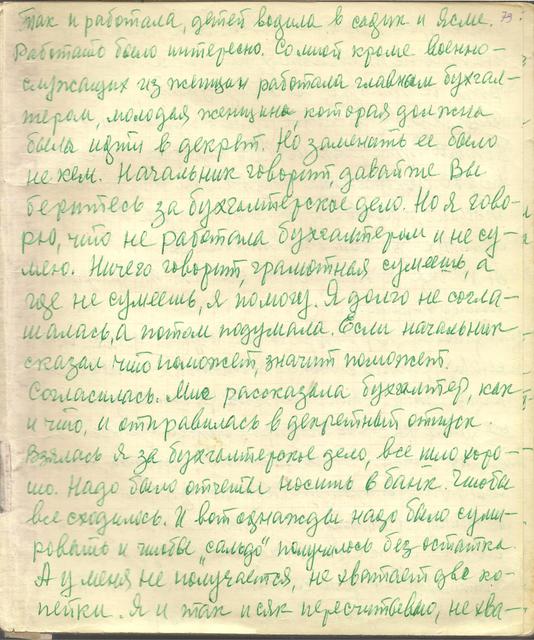 Так и работала, детей водила в садик и ясли. 79.
Работать было интересно. Со мной кроме военно-
служащих из женщин работала главным бухгал-
тером, молодая женщина, которая должна
была идти в декрет. Но заменить ее было
не кем. Начальник говорит, давайте Вы
беритесь за бухгалтерское дело. Но я гово-
рю, что не работала бухгалтером и не су-
мею. Ничего говорит, грамотная сумеешь, а
где не сумеешь, я помогу. Я долго не согла-
шалась, а потом подумала. Если начальник
сказал что поможет, значит поможет.
Согласилась. Мне рассказала бухгалтер, как
и что, и отправилась в декретный отпуск
Взялась я за бухгалтерское дело, все шло хоро-
шо. Надо было отчеты носить в банк. Чтобы
все сходилось. И вот однажды надо было сумми-
ровать и чтобы „сальдо" получилось без остатка.
А у меня не получается, не хватает две ко-
пейки. Я и так и сяк пересчитываю, не хва-